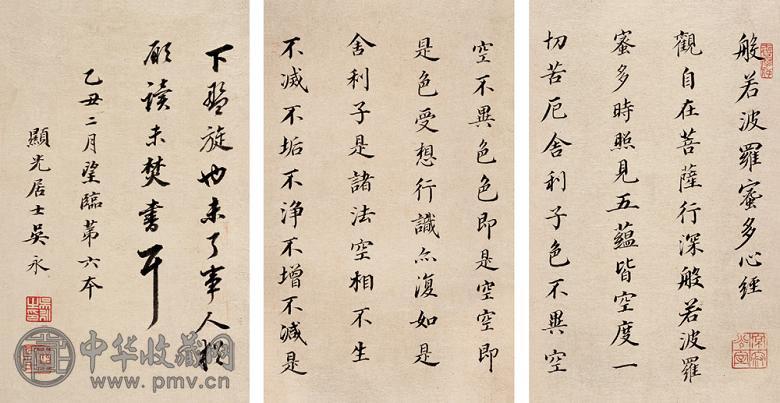 般若波羅蜜多心經
觀自在菩薩行深般若波羅
蜜多時照見五蘊皆空度一
切苦厄舍利子色不異空
空不異色色即是空空即
是色受想行識亦復如是
舍利子是諸法空相不生
不滅不垢不淨不增不減是
下盤旋也未了事人
願讀未焚書耳
乙丑二月望臨第六本
顯光居士吳永
中华收藏网
www.pmv.cn